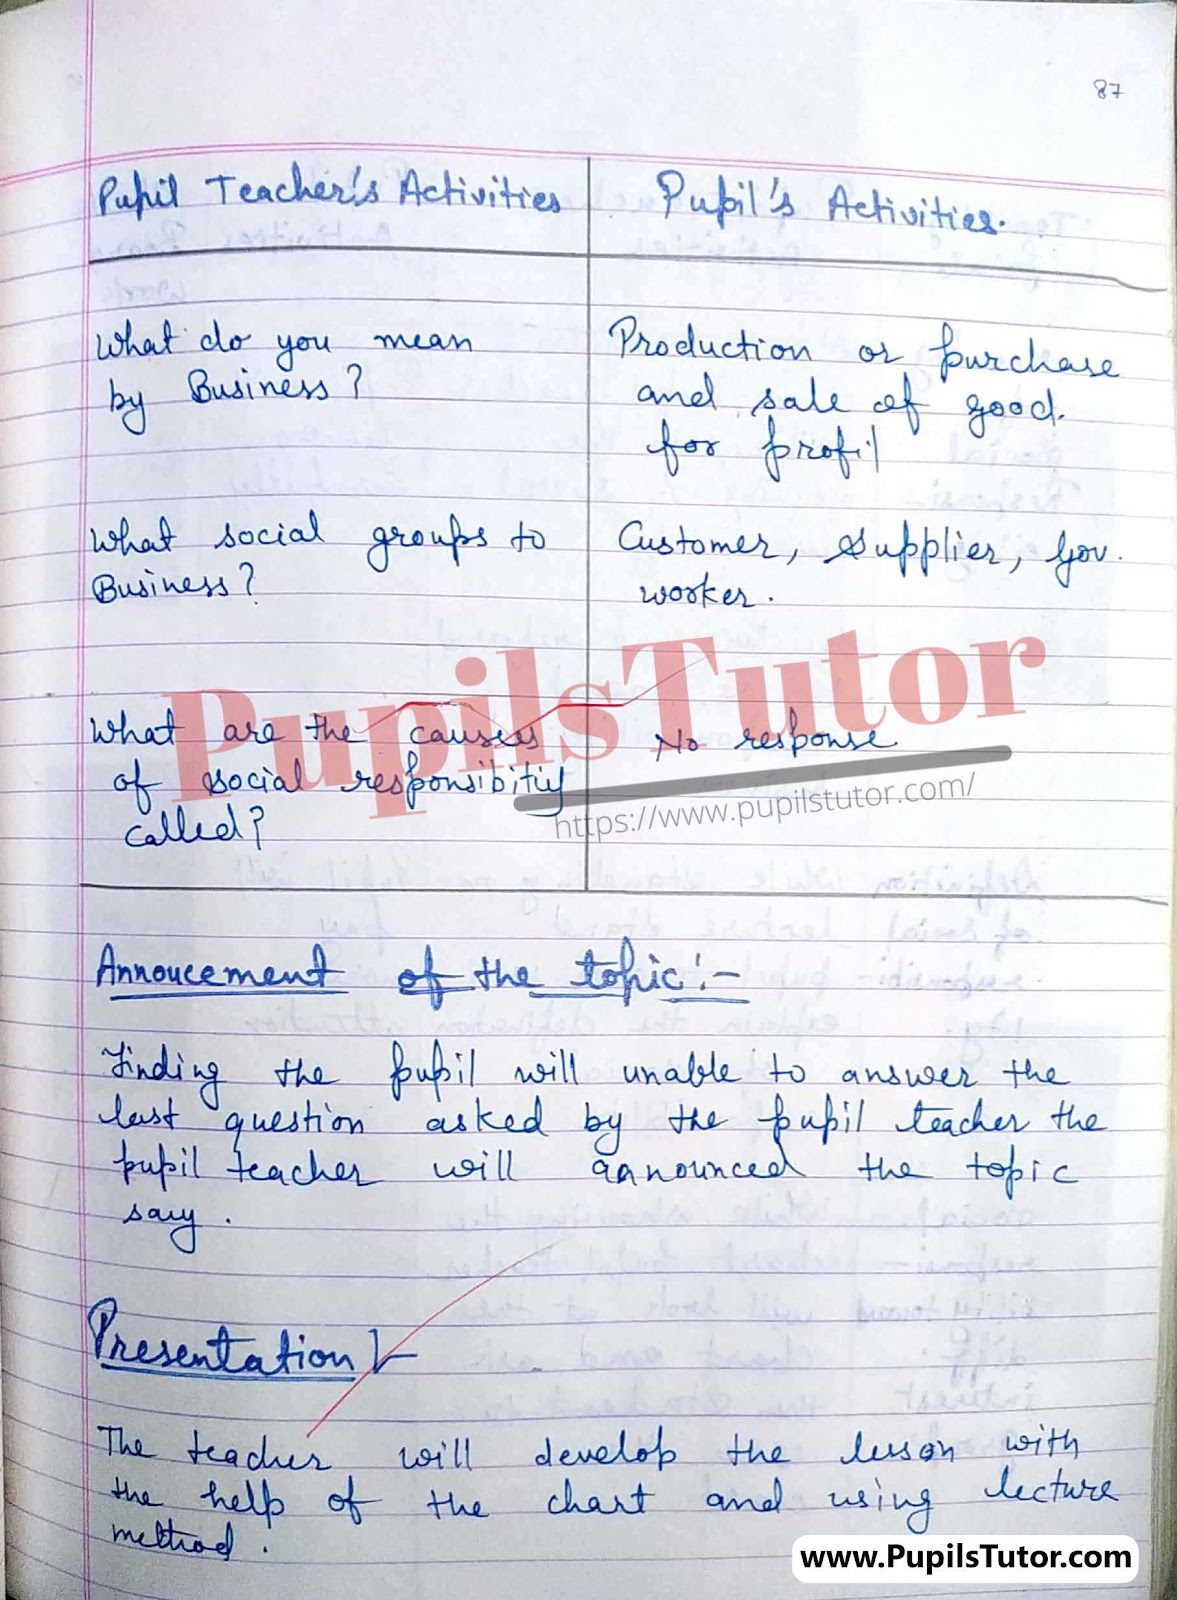 87
Pupil Teacher's Activities
Pupil's Activities.
What do you mean
by Business?
Production or purchase
and sale of good
for profit
What social groups to
Business?
Customer, Supplier, Gov.
worker.
What are the causes
of social responsibitiy
called?
No response
PupilsTutor
https://www.pupilstutor.com/
Annoucement of the topic:-
Finding the pupil will unable to answer the
last question asked by the pupil teacher the
pupil teacher will announced the topic
say.
Presentation :-
The teacher will develop the lesson with
the help of the chart and using lecture
method.
www.PupilsTutor.com